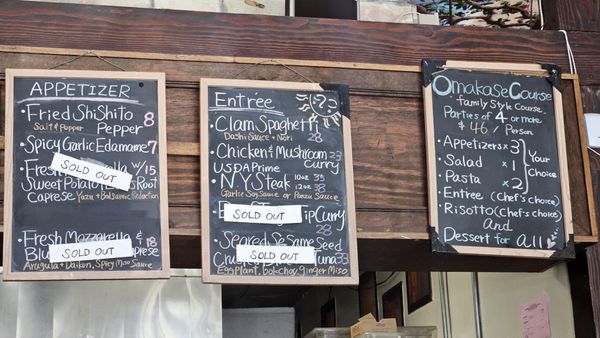 APPETIZER
Fried Shishito 8
Salt & Pepper Pepper
Spicy Garlic Edamame 7
Fresh w/ 15
SOLD OUT
Sweet Potato Root
Caprese Yuzu + Balsamic Reduction
Fresh Mozzarella & 18
SOLD OUT
Arugula + Daikon, Spicy Miso Sauce
Entrée
Clam Spaghetti
Dashi Sauce + Nori 28
Chicken & Mushroom 23
Curry
USDA Prime
NY Steak 10oz 33
12oz 38
Garlic Soy Sauce or Ponzu Sauce
SOLD OUT
Curry
28
Seared Sesame Seed
SOLD OUT
33
Eggplant, bok choy, ginger Miso
Omakase Course
Family Style Course
Parties of 4 or more
$ 46 / Person
Appetizers x 3
Salad x 1
Pasta x 2
Your Choice
Entree (Chef's choice)
Risotto (Chef's choice)
And
Dessert for all